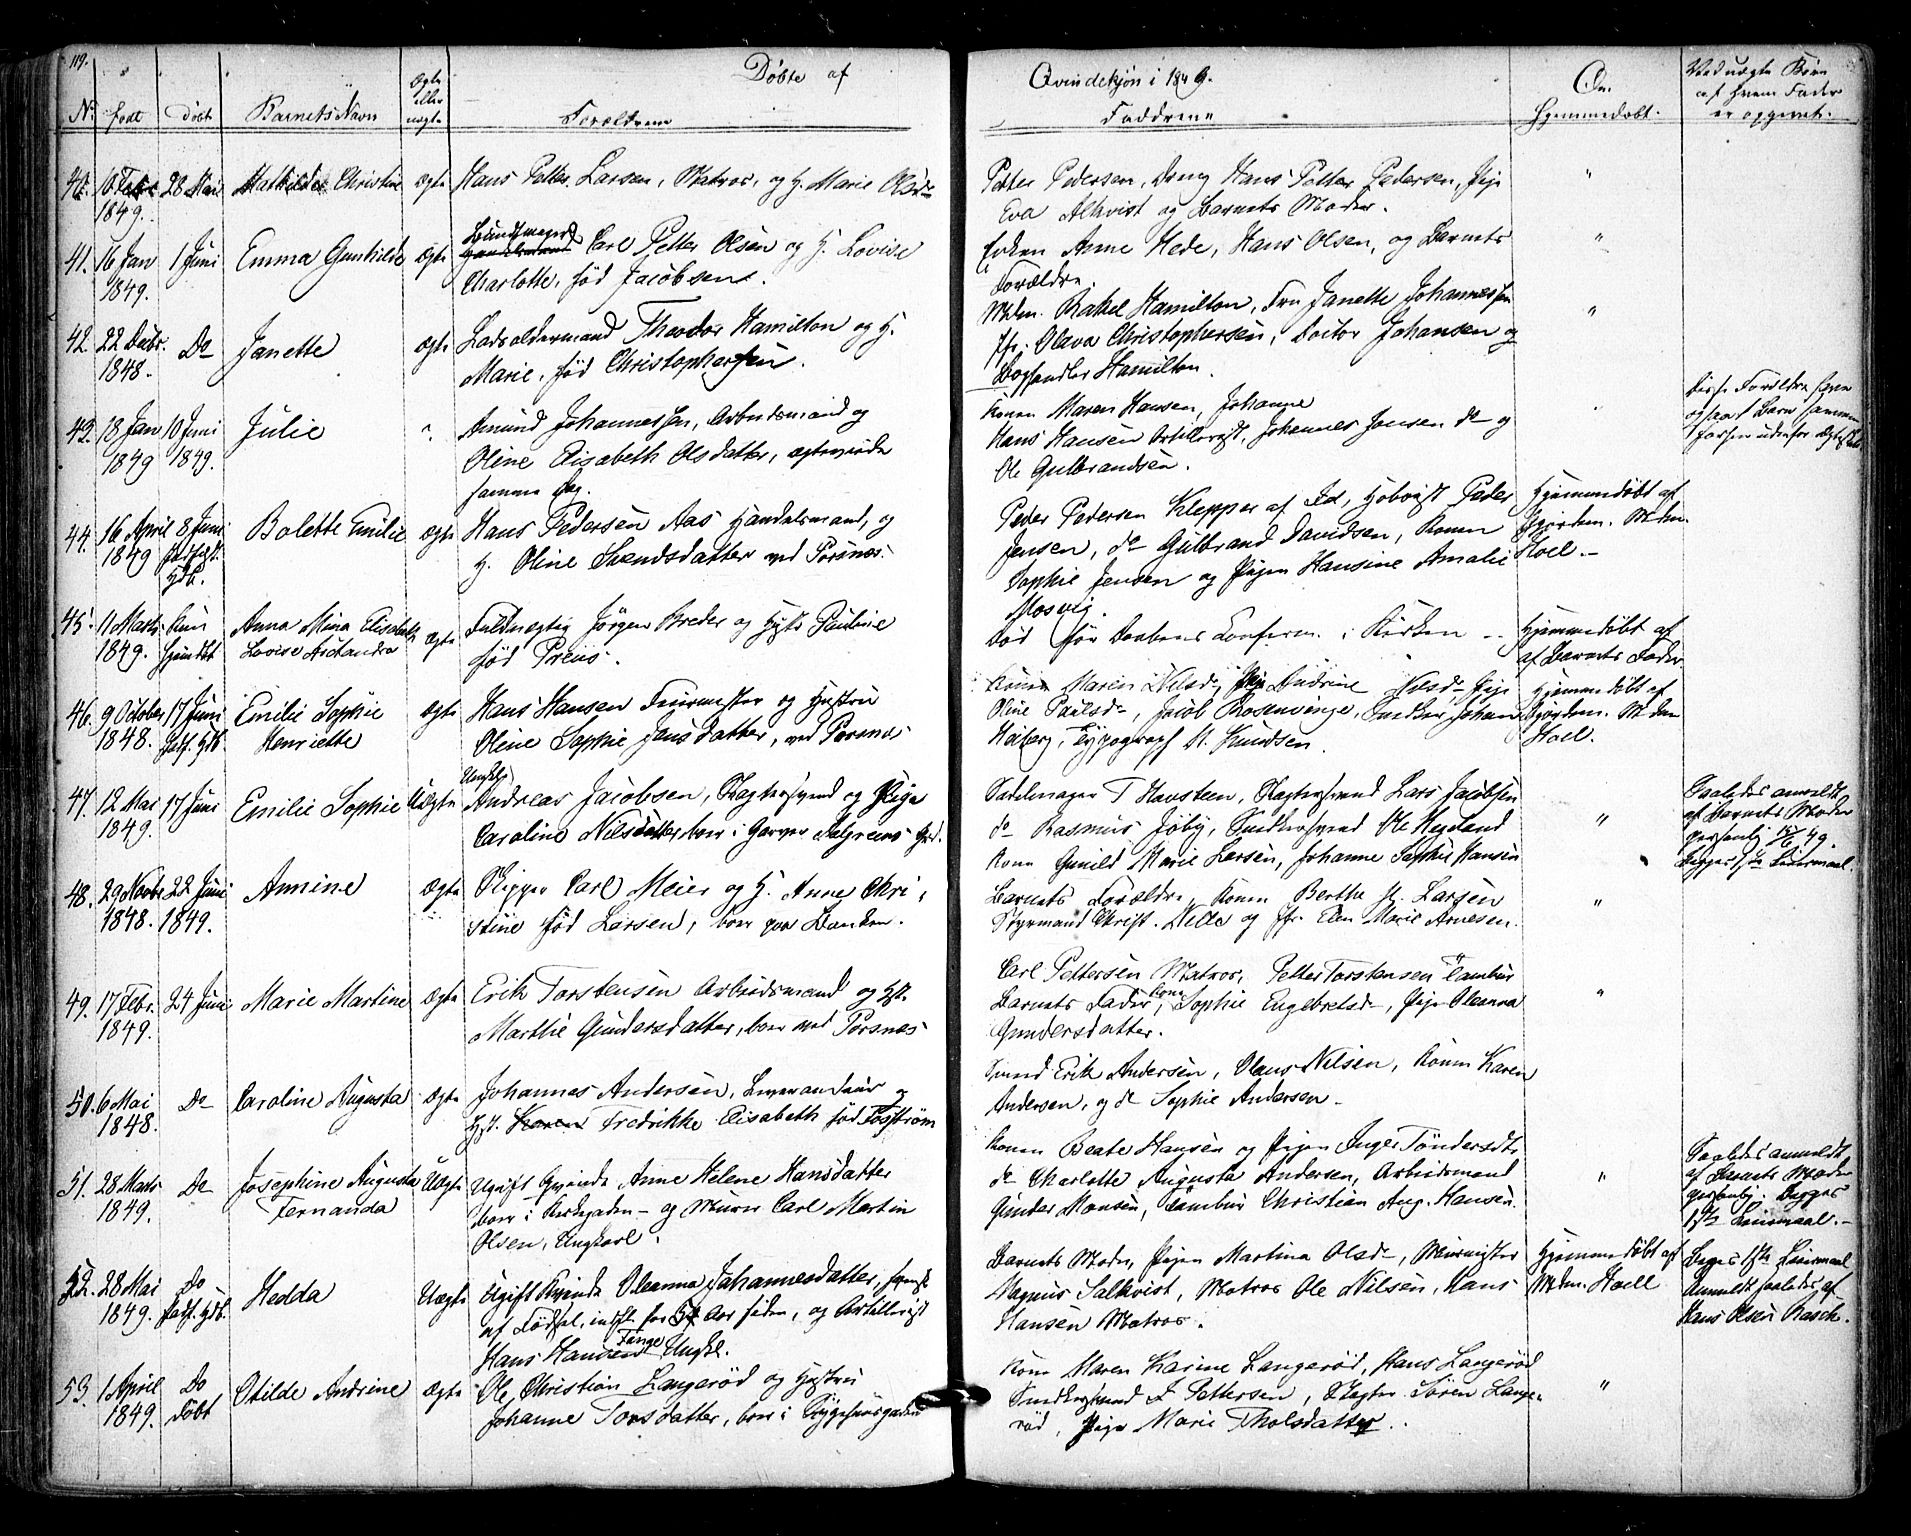 119.
Døbte af
Qvindekjøn i 1849.
No. født døbt Barnets Navn Ægte eller uægte Forældrene
Faddrene Om Hjemmedøbt. Ved uægte Børn af hvem Fader er opgivet.
40. 6 Febr 1849. 28 Mai Mathilde Christine ægte
Hans Petter Larsen, Matros, og H. Marie Olsd
Petter Pedersen, Dreng Hans Petter Pedersen, Pige
Eva Alkvist og Barnets Moder.
41. 16 Jan 1849. 1 Juni Emma Gunhilde ægte
Bundtmager Carl Petter Olsen og H. Lovise
Charlotte, fød Jacobsen.
Enken Anne Hede, Hans Olsen, og Barnets
Forældre.
42. 22 Decbr. 1848. Do Janette ægte
Ladsoldermand Theodor Hamilton og H.
Marie, fød Christophersen.
Mdm. Rakel Hamilton, Fru Janette Johannessen
Jfr. Olava Christophersen, Doctor Johansen og
Boghandler Hamilton.
43. 18 Jan 1849 10 Juni 1849. Julie
Amund Johannessen, Arbeidsmand og
Oline Elisabeth Olsdatter, ægteviede
samme Dag.
Konen Maren Hansen, Johanne
Hans Hansen Artillerist, Johannes Jensen do og
Ole Gulbrandsen.
Disse Forældre
44. 16 April 1849 8 Juni Bolette Emilie ægte
Hans Pedersen Aas Handelsmand, og
H. Oline Svendsdatter ved Porsnes.
Peder Pedersen Klepper af Id, Peder
Jensen, do Gulbrand Davidsen, Konen
Sophie Jensen og Pigen Hansine Amalie
Mosvig.
Hjemmedøbt af
Gjordem. Mdm.
Hoel.
45. 11 Marts 1849. Kun hjemdbt Anna Mina Elisabeth
Lovise ægte
Fuldmægtig Jørgen Breder og Hustr Pauline
fød Preus.
Død før Daabens Confirm. i Kirken
Hjemmedøbt af
af Barnets Fader
46. 9 October 1848. 17 Juni Emilie Sophie
Henriette ægte
Hans Hansen Feiermester og Hustru
Oline Sophie Jensdatter, ved Porsnes
Konen Maren Nilsd, Pige Andrine Nilsd Pige
Oline Paulsd, Jacob Rosenvinge, Snedker Johan
Heiberg, Typograph H. Knudsen.
Hjemmedøbt af
Gjordem. Mdm
Hoel.
47. 12 Mai 1849. 17 Juni Emilie Sophie Uægte
Ungkl Andreas Jacobsen, Slagtersvend og Pige
Caroline Nilsdatter, boer i Garver Grd.
Sadelmager T Havsteen, Slagtersvend Lars Jacobsen
do Rasmus Jøby, Snedkersvend Ole Hegeland
Kone Gunild Marie Larsen, Johanne Sophie Hansen
Saaledes anmeldt
af Barnets Moder
personlig 15/6 49.
Begges 1ste Leiermaal.
48. 29 Novbr 1848. 22 Juni 1849. Annine ægte
Skipper Carl Meier og H. Anne Chri-
stine fød Larsen, boer paa Banken.
Barnets Forældre, Konen Berthe H. Larsen
Styrmand Christ. Nille og Jfr. Elen Marie Arnesen.
49. 17 Febr. 1849. 24 Juni Marie Martine ægte
Erik Torstensen Arbeidsmand og Hst.
Marthe Gundersdatter, boer ved Porsnes
Carl Pettersen Matros, Petter Torstensen Tambur
Barnets Fader, Kone Sophie Engebretsd, Pige Oleanna
Gundersdatter.
50. 6 Mai 1848. Do Caroline Augusta ægte
Johannes Andersen, Leverandeur og
Hst. Karen Fredrikke Elisabeth fød Fosstrøm
Svend Erik Andersen, Olaus Nilsen, Konen Karen
Andersen, og do Sophie Andersen
51. 28 Marts 1849. Do Josephine Augusta
Fernanda Uægte
Ugift Qvinde Anne Helene Hansdatter
boer i Kirkegaden - og Murer Carl Martin
Olsen, Ungkarl.
Konen Beate Hansen og Pigen Inger Tøndersdt
do Charlotte Augusta Andersen, Arbeidsmand
Gunder Monsen, Tambur Christian Aug. Hansen.
Saaledes anmeldt
af Barnets Moder
personlig. Begges
1ste Leiermaal.
52. 28 Mai 1849. Do Hedda Uægte
Ugift Kvinde Oleanna Johannesdatter, svensk
af Fødsel, indfl. for Aar siden, og Artillerist
Hans Hansen Tange Ungkl.
Barnets Moder, Pigen Martina Olsd, Murmester
Magnus Salkvist, Matros Ole Nilsen, Hans
Hansen Matros.
Hjemmedøbt af
Mdm. Hoell
Begges 1ste Leiermaal
Anmeldt saaledes af
Hans Olsen Rasch.
53. 1 April 1849. Do døbt Otilde Andrine ægte
Ole Christian Langerød og Hustru
Johanne Torsdatter, boer i Sygehuusgaden
Kone Maren Karine Langerød, Hans Langerød
Snedkersvend J Pettersen, Slagter Søren Lange-
rød, Pige Marie Tholsdatter.